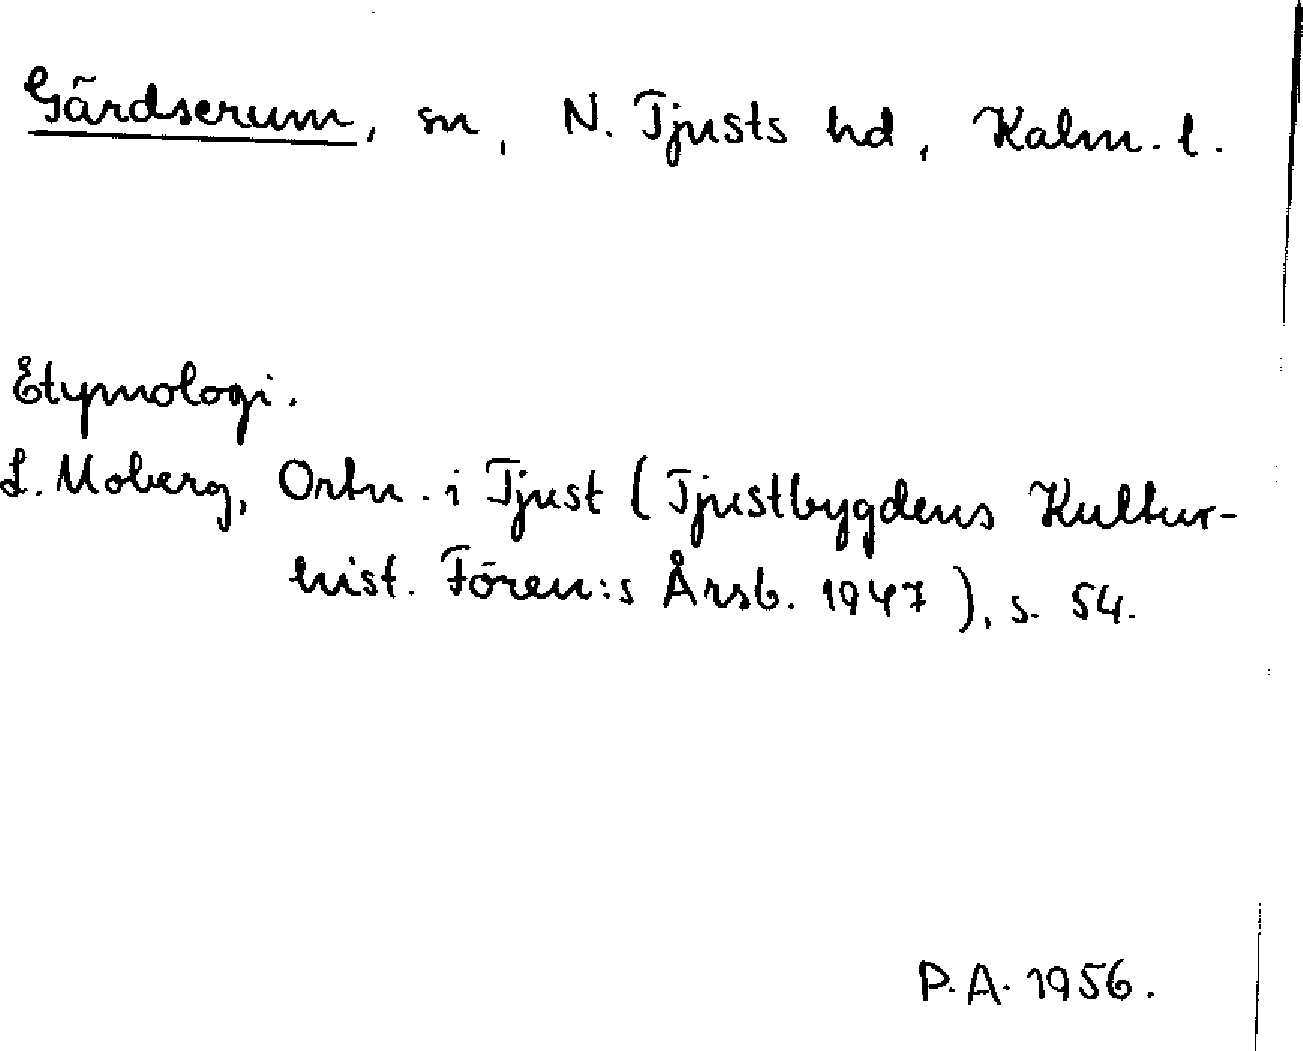 Gärdserum, sn, N. Tjusts hd, Kalm. l.
Etymologi.
L. Moberg, Ortn. i Tjust (Tjustbygdens Kultur-
hist. Fören:s Årsb. 1947), s. 54.
P.A. 1956.